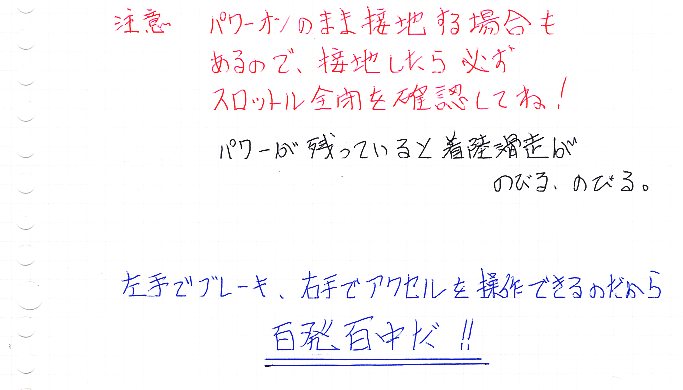 注意 パワーオンのまま接地する場合も
あるので、接地したら必ず
スロットル全閉を確認してね!
パワーが残っていると着陸滑走が
のびる、のびる。
左手でブレーキ、右手でアクセルを操作できるのだから
百発百中だ!!